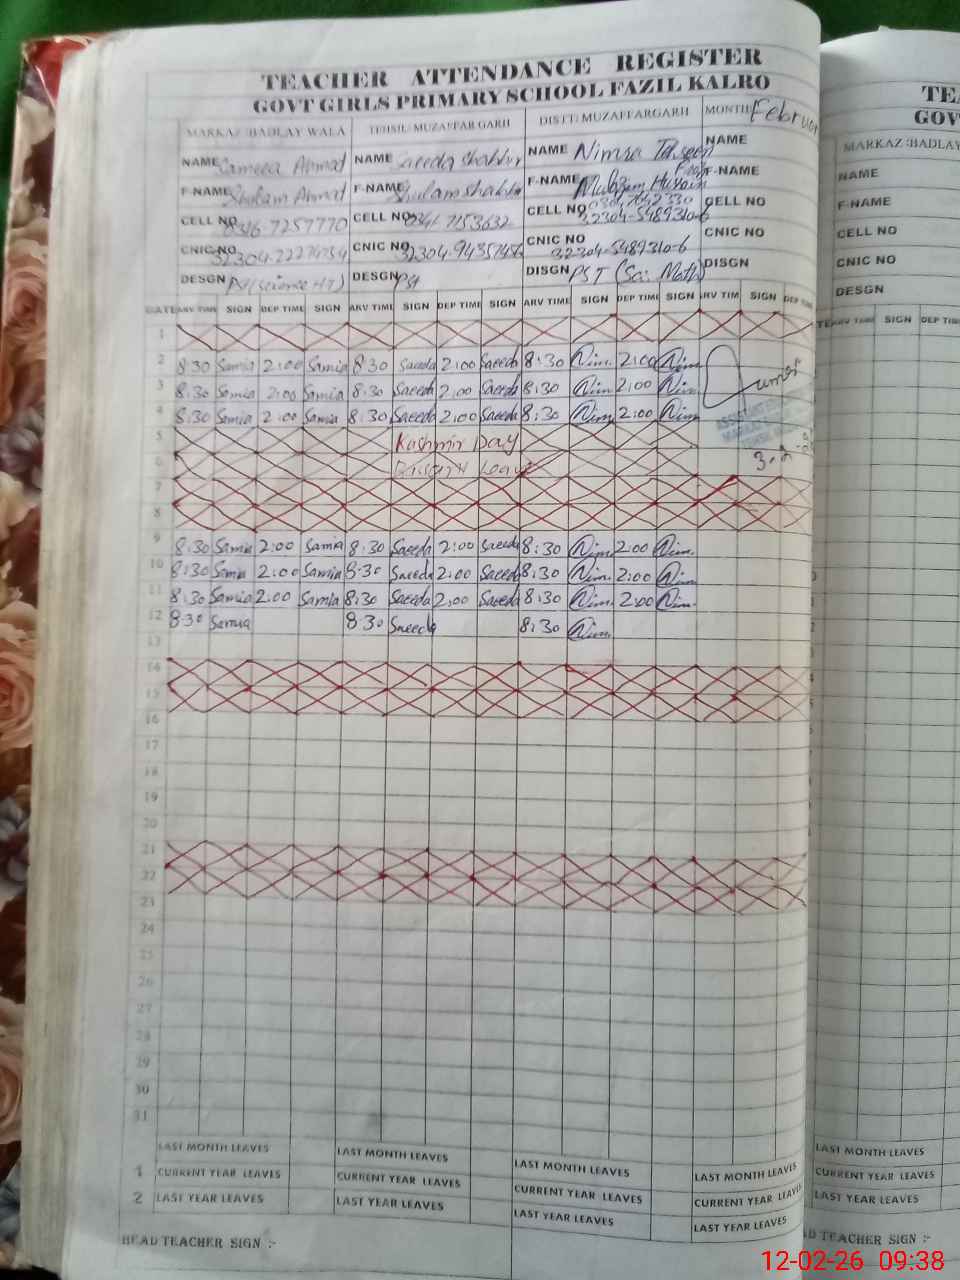 TEACHER ATTENDANCE REGISTER
GOVT GIRLS PRIMARY SCHOOL FAZIL KALRO
MARKAZ :BADLAY WALA TEHSIL: MUZAFFAR GARH DISTT: MUZAFFARGARH MONTH
NAME Sameea Ahmad NAME Saeeda Shabbir NAME Nimra NAME
F-NAME Ghulam Ahmad F-NAME Ghulam Shabbir F-NAME F-NAME
CELL NO 0316-7257770 CELL NO CELL NO CELL NO
CNIC NO CNIC NO CNIC NO 32304-5489310-6 CNIC NO
DESGN DESGN PST DISGN PST (Sci Math) DISGN
DATE ARV TIME SIGN DEP TIME SIGN ARV TIME SIGN DEP TIME SIGN ARV TIME SIGN DEP TIME SIGN ARV TIM SIGN DEP TIM
1
2 8:30 Samia 2:00 Samia 8:30 Saeeda 2:00 Saeeda 8:30 Nim 2:00 Nim
3 8:30 Samia 2:00 Samia 8:30 Saeeda 2:00 Saeeda 8:30 Nim 2:00 Nim
4 8:30 Samia 2:00 Samia 8:30 Saeeda 2:00 Saeeda 8:30 Nim 2:00 Nim
5 Kashmir Day
6
7
8
9 8:30 Samia 2:00 Samia 8:30 Saeeda 2:00 Saeeda 8:30 Nim 2:00 Nim
10 8:30 Samia 2:00 Samia 8:30 Saeeda 2:00 Saeeda 8:30 Nim 2:00 Nim
11 8:30 Samia 2:00 Samia 8:30 Saeeda 2:00 Saeeda 8:30 Nim 2:00 Nim
12 8:30 Samia 8:30 Saeeda 8:30 Nim
13
14
15
16
17
18
19
20
21
22
23
24
25
26
27
28
29
30
31
LAST MONTH LEAVES LAST MONTH LEAVES LAST MONTH LEAVES LAST MONTH LEAVES
1 CURRENT YEAR LEAVES CURRENT YEAR LEAVES CURRENT YEAR LEAVES CURRENT YEAR LEAVES
2 LAST YEAR LEAVES LAST YEAR LEAVES LAST YEAR LEAVES LAST YEAR LEAVES
HEAD TEACHER SIGN :-
MARKAZ :BADLAY
NAME
F-NAME
CELL NO
CNIC NO
DESGN
ARV TIME SIGN DEP TIME
LAST MONTH LEAVES
CURRENT YEAR LEAVES
LAST YEAR LEAVES
TEACHER SIGN :-
12-02-26 09:38